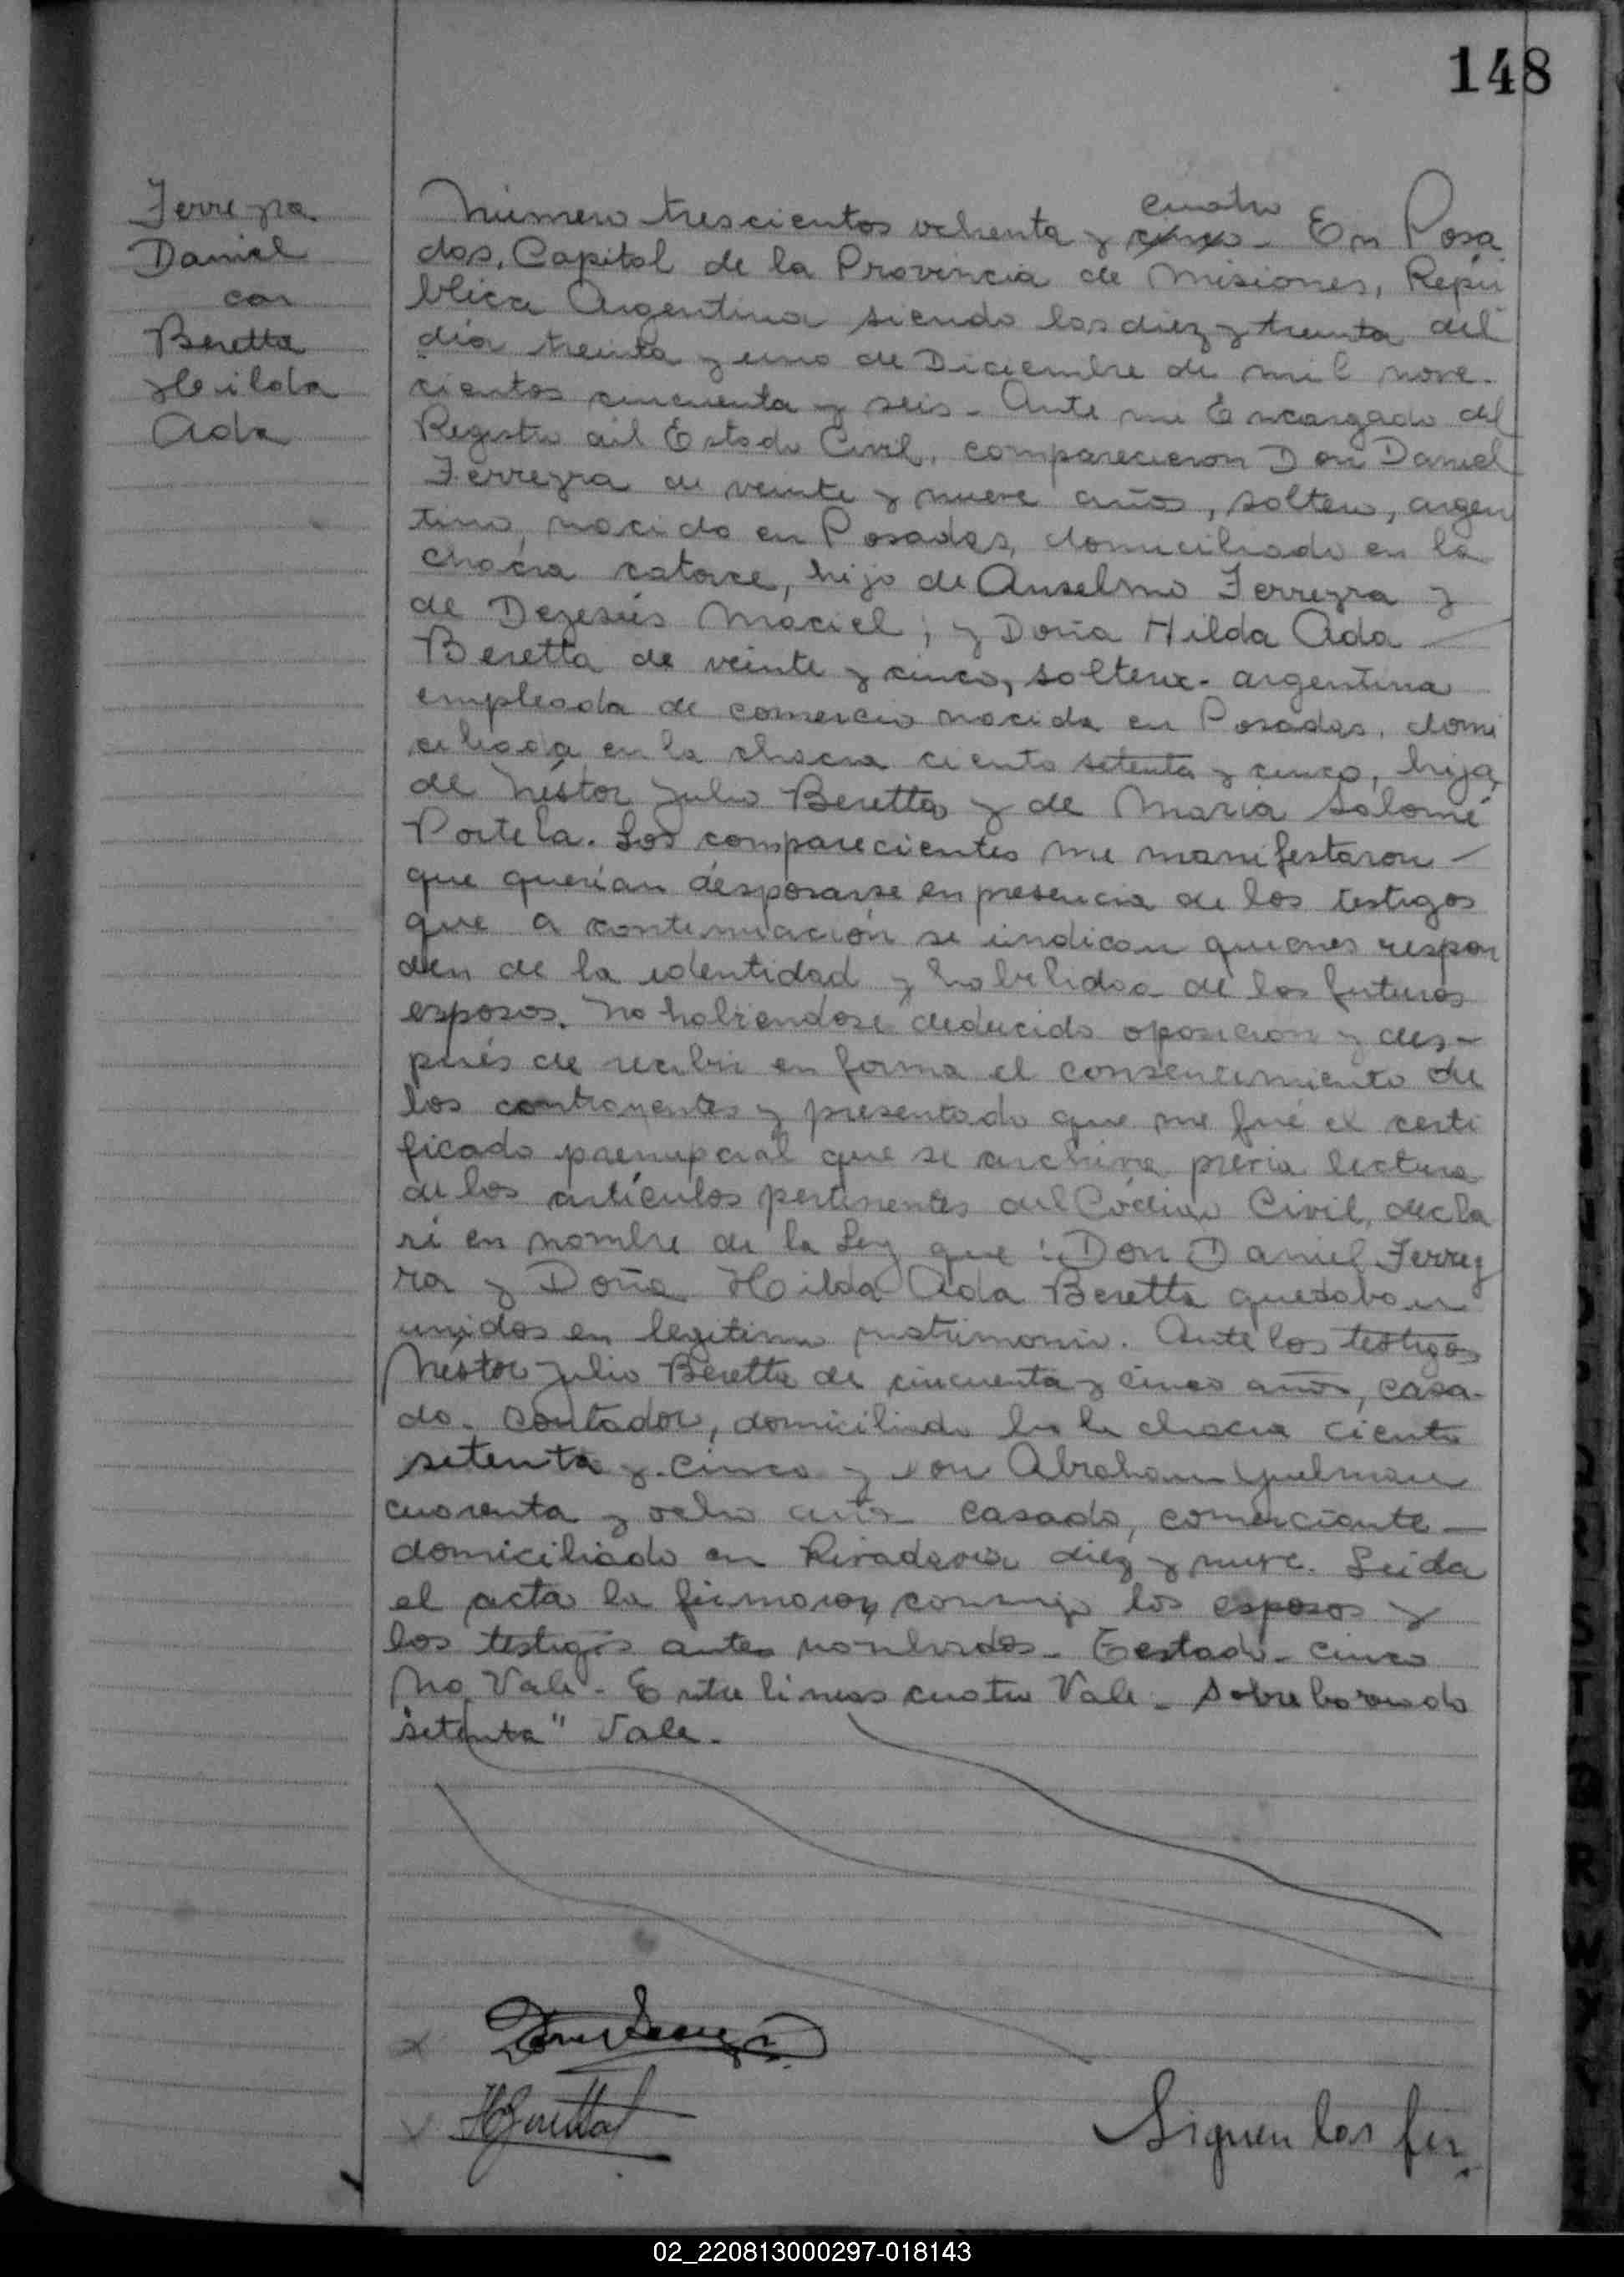 148
Ferreyra
Daniel
con
Beretta
Hilda
Ada
cuatro
Número trescientos ochenta y cinco. En Posa
das, Capital de la Provincia de Misiones, Repú
blica Argentina siendo las diez y treinta del
día treinta y uno de Diciembre de mil nove-
cientos cincuenta y seis. Ante mi Encargado del
Registro del Estado Civil, comparecieron Don Daniel
Ferreyra de veinte y nueve años, soltero, argen
tino, nacido en Posadas, domiciliado en la
chacra catorce, hijo de Anselmo Ferreyra y
de Dejesús Maciel; y Doña Hilda Ada
Beretta de veinte y cinco, soltera. argentina
empleada de comercio nacida en Posadas, domi
ciliada en la chacra ciento setenta y cinco, hija
de Néstor Julio Beretta y de María Salomé
Portela. Los comparecientes me manifestaron
que querían desposarse en presencia de los testigos
que a continuación se indican quienes respon
den de la identidad y habilidad de los futuros
esposos. No habiéndose deducido oposición y des-
pués de recibir en forma el consentimiento de
los contrayentes y presentado que me fué el certi
ficado prenupcial que se archiva previa lectura
de los artículos pertinentes del Código Civil, decla
ré en nombre de la Ley que: Don Daniel Ferrey
ra y Doña Hilda Ada Beretta quedaban
unidos en legítimo matrimonio. Ante los testigos
Néstor Julio Beretta de cincuenta y cinco años, casa-
do. Contador, domiciliado en la chacra ciento
setenta y cinco y don Abraham
cuarenta y ocho años casado, comerciante
domiciliado en Rivadavia diez y nueve. Leida
el acta la firmaron conmigo los esposos y
los testigos antes nombrados. Testado. cinco
No Vale. Entre lineas cuatro Vale. Sobre borrado
"setenta" Vale.
Siguen las fir
02_220813000297-018143